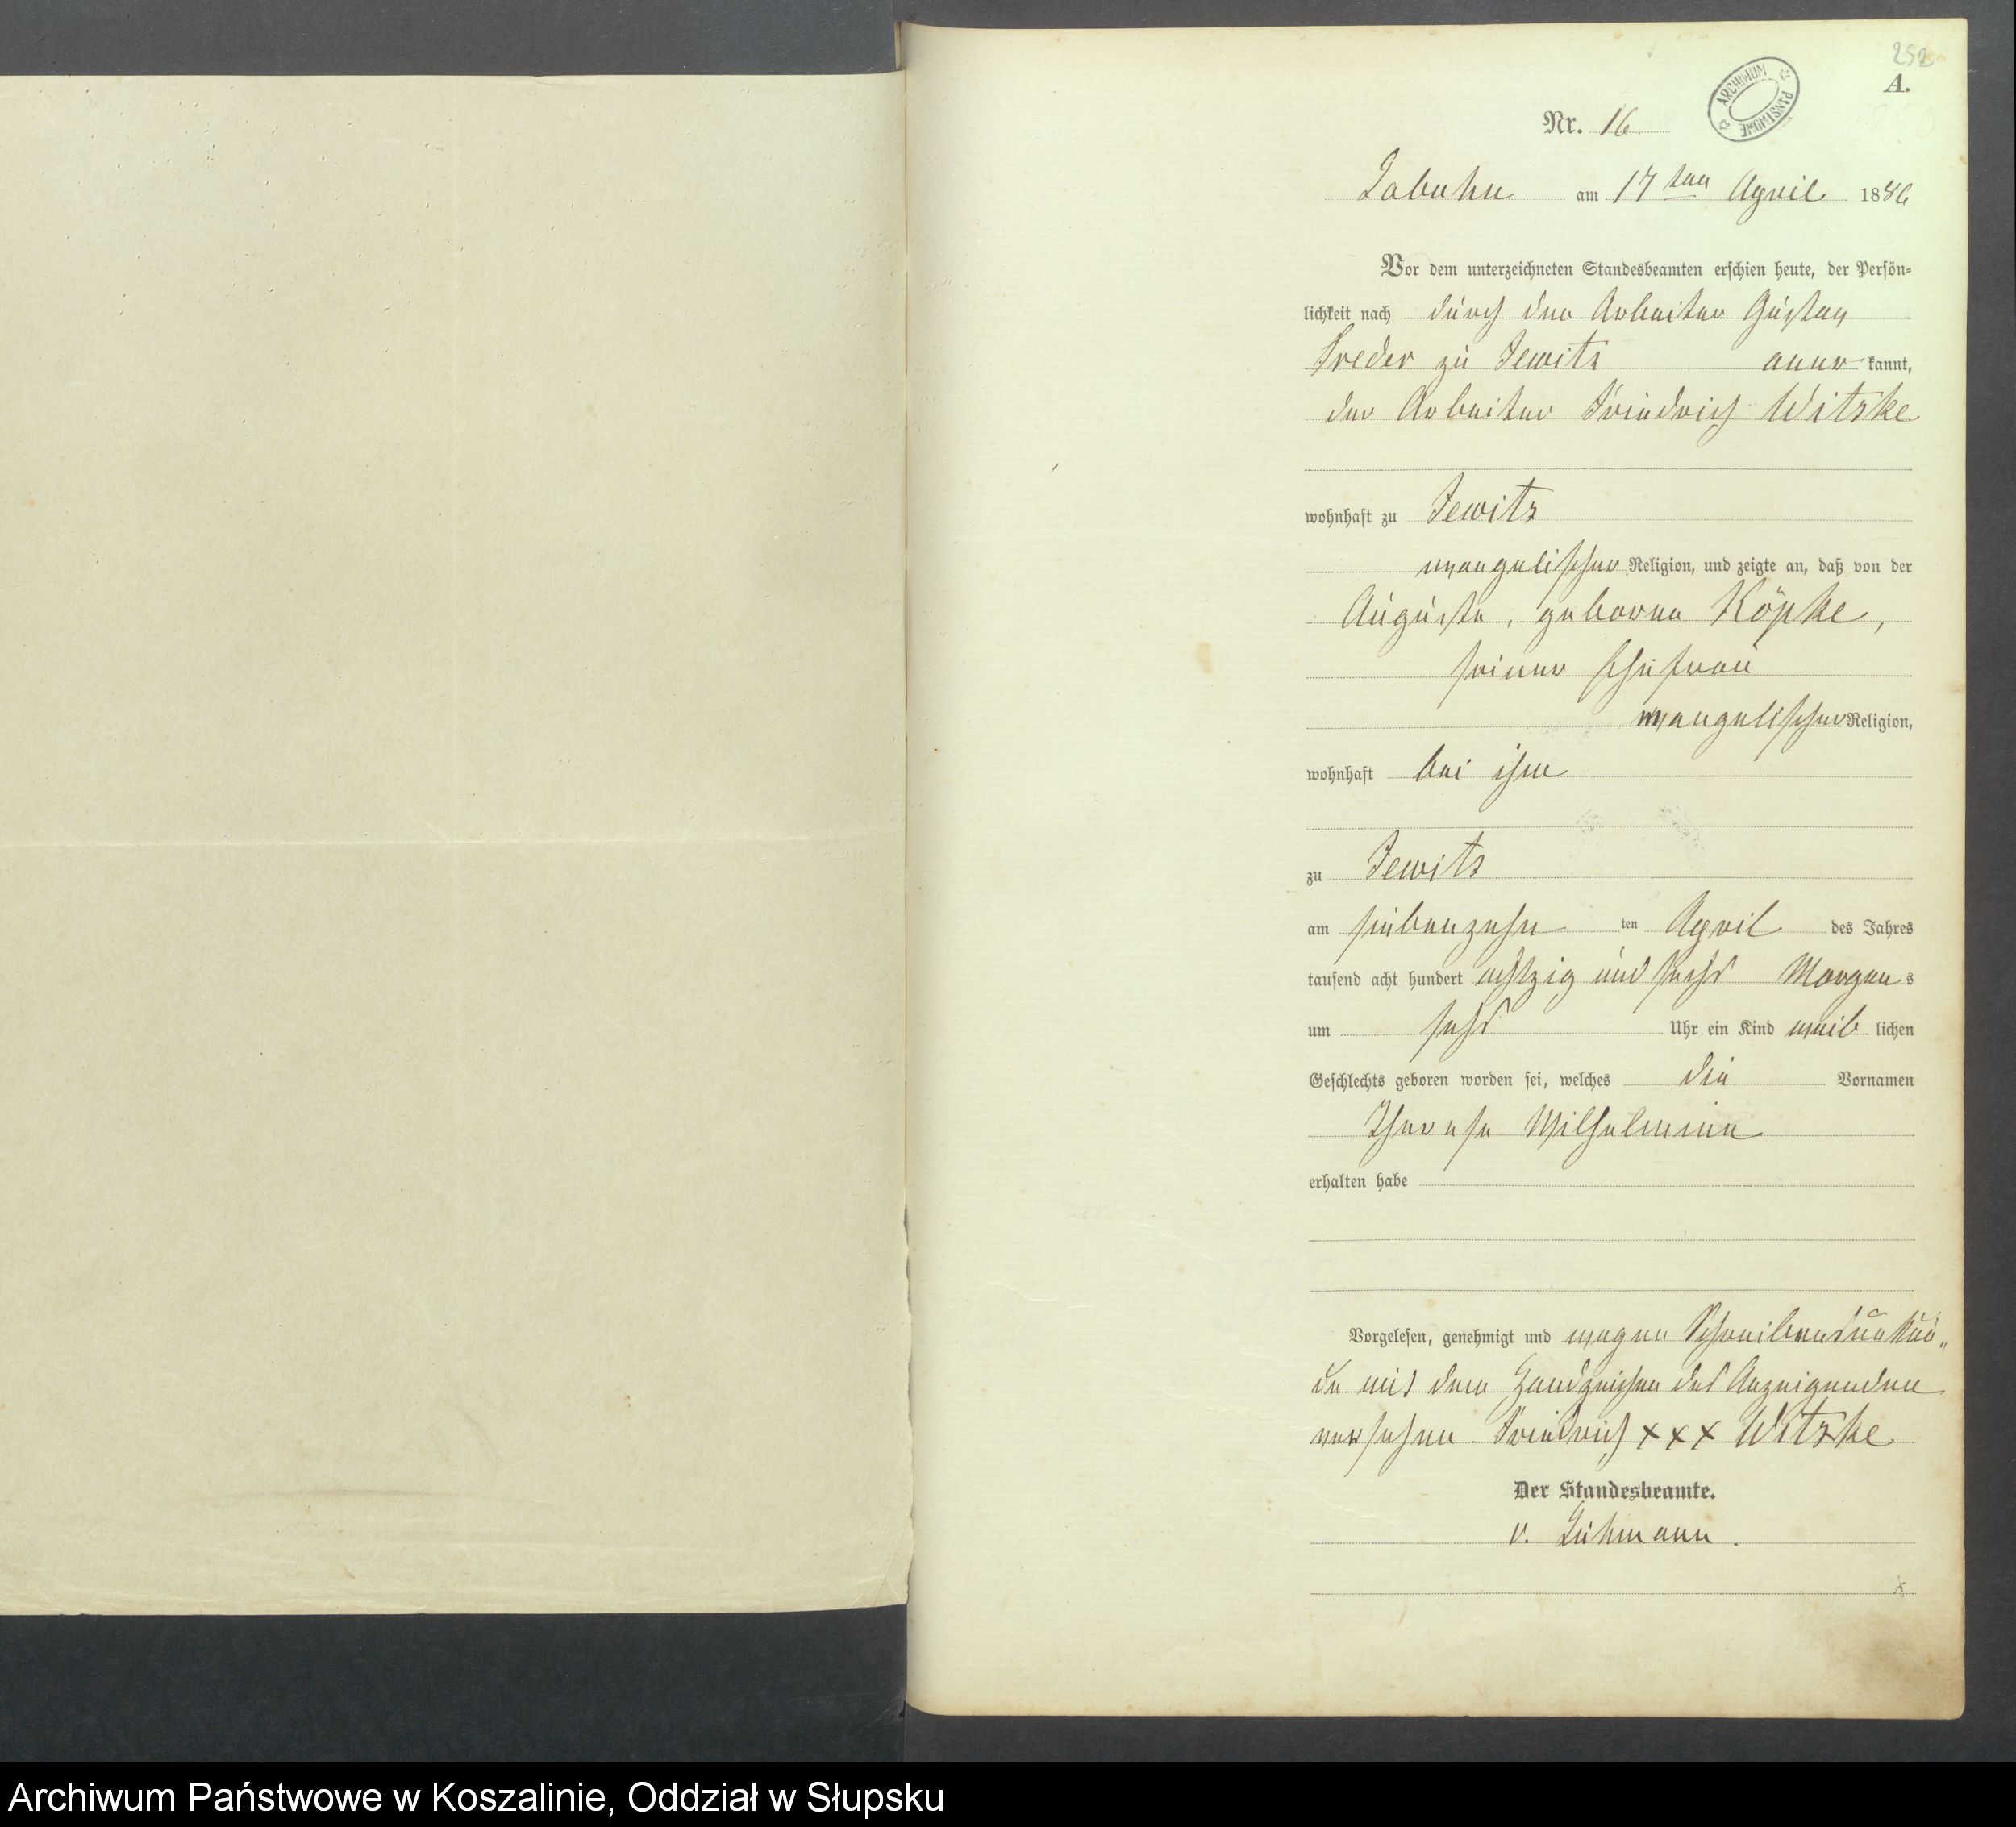 252
A.
ARCHIWUM PAŃSTWOWE
Nr. 16.
Labuhn am 17ten April 1886
Vor dem unterzeichneten Standesbeamten erschien heute, der Persön-
lichkeit nach durch den Arbeiter Gustav
Treder zu Jewitz aner kannt,
der Arbeiter Friedrich Witzke
wohnhaft zu Jewitz
evangelischer Religion, und zeigte an, daß von der
Auguste, geborne Köpke,
seiner Ehefrau
evangelischer Religion,
wohnhaft bei ihm
zu Jewitz
am siebenzehn ten April des Jahres
tausend acht hundert achtzig und sechs Morgen s
um sechs Uhr ein Kind weib lichen
Geschlechts geboren worden sei, welches die Vornamen
Therese Wilhelmine
erhalten habe
Vorgelesen, genehmigt und wegen Schreibensunkun„
de mit dem Handzeichen des Anzeigenden
versehen. Friedrich xxx Witzke
Der Standesbeamte.
v. Lühmann.
Archiwum Państwowe w Koszalinie, Oddział w Słupsku